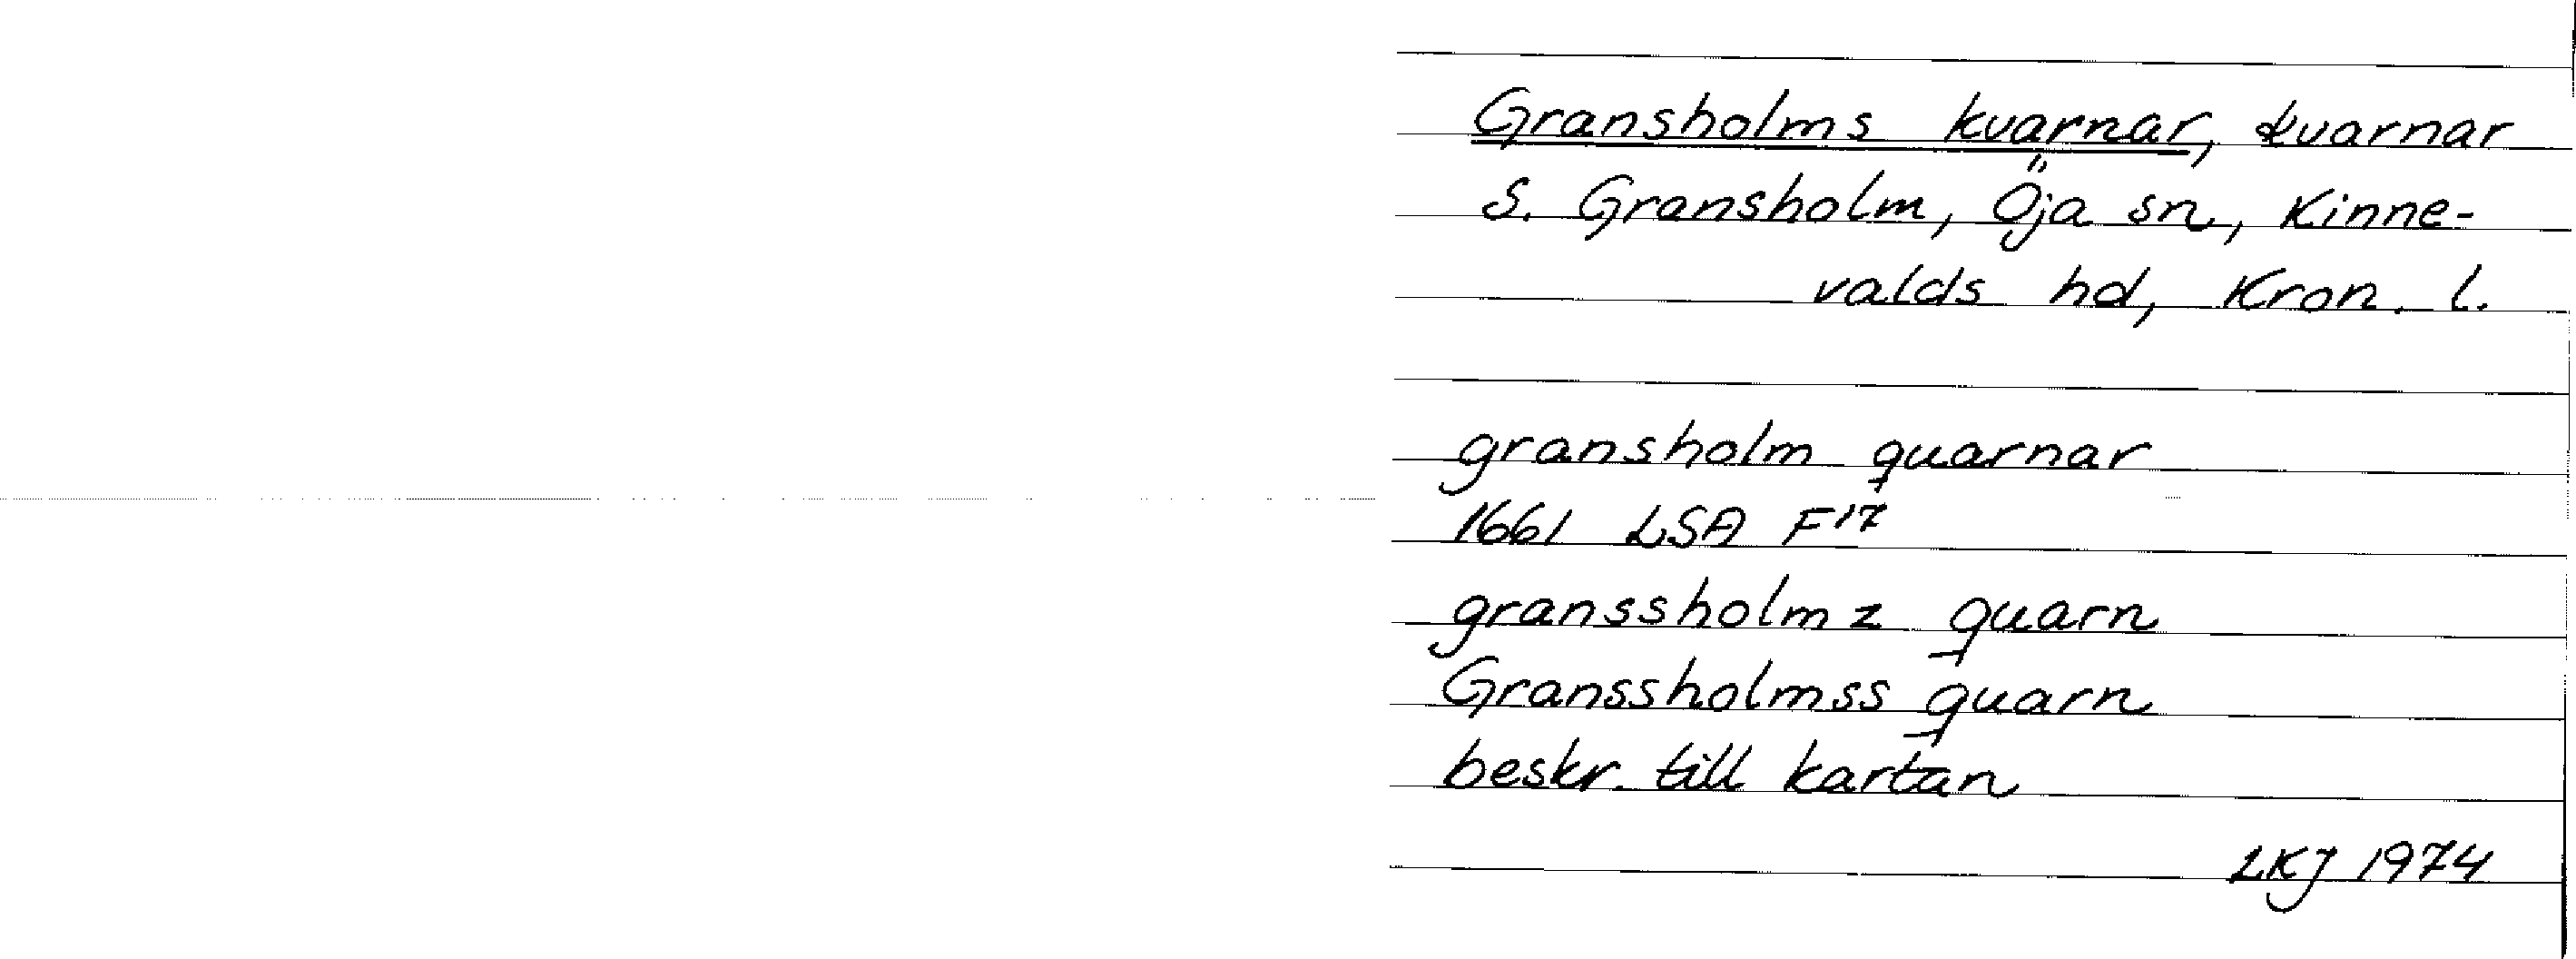 Gransholms kvarnar, kvarnar
S. Gransholm, Öja sn, Kinne-
valds hd, Kron. l.
gransholm quarnar
1661 LSA F17
granssholmz quarn
Granssholmss quarn
beskr. till kartan
LKJ 1974